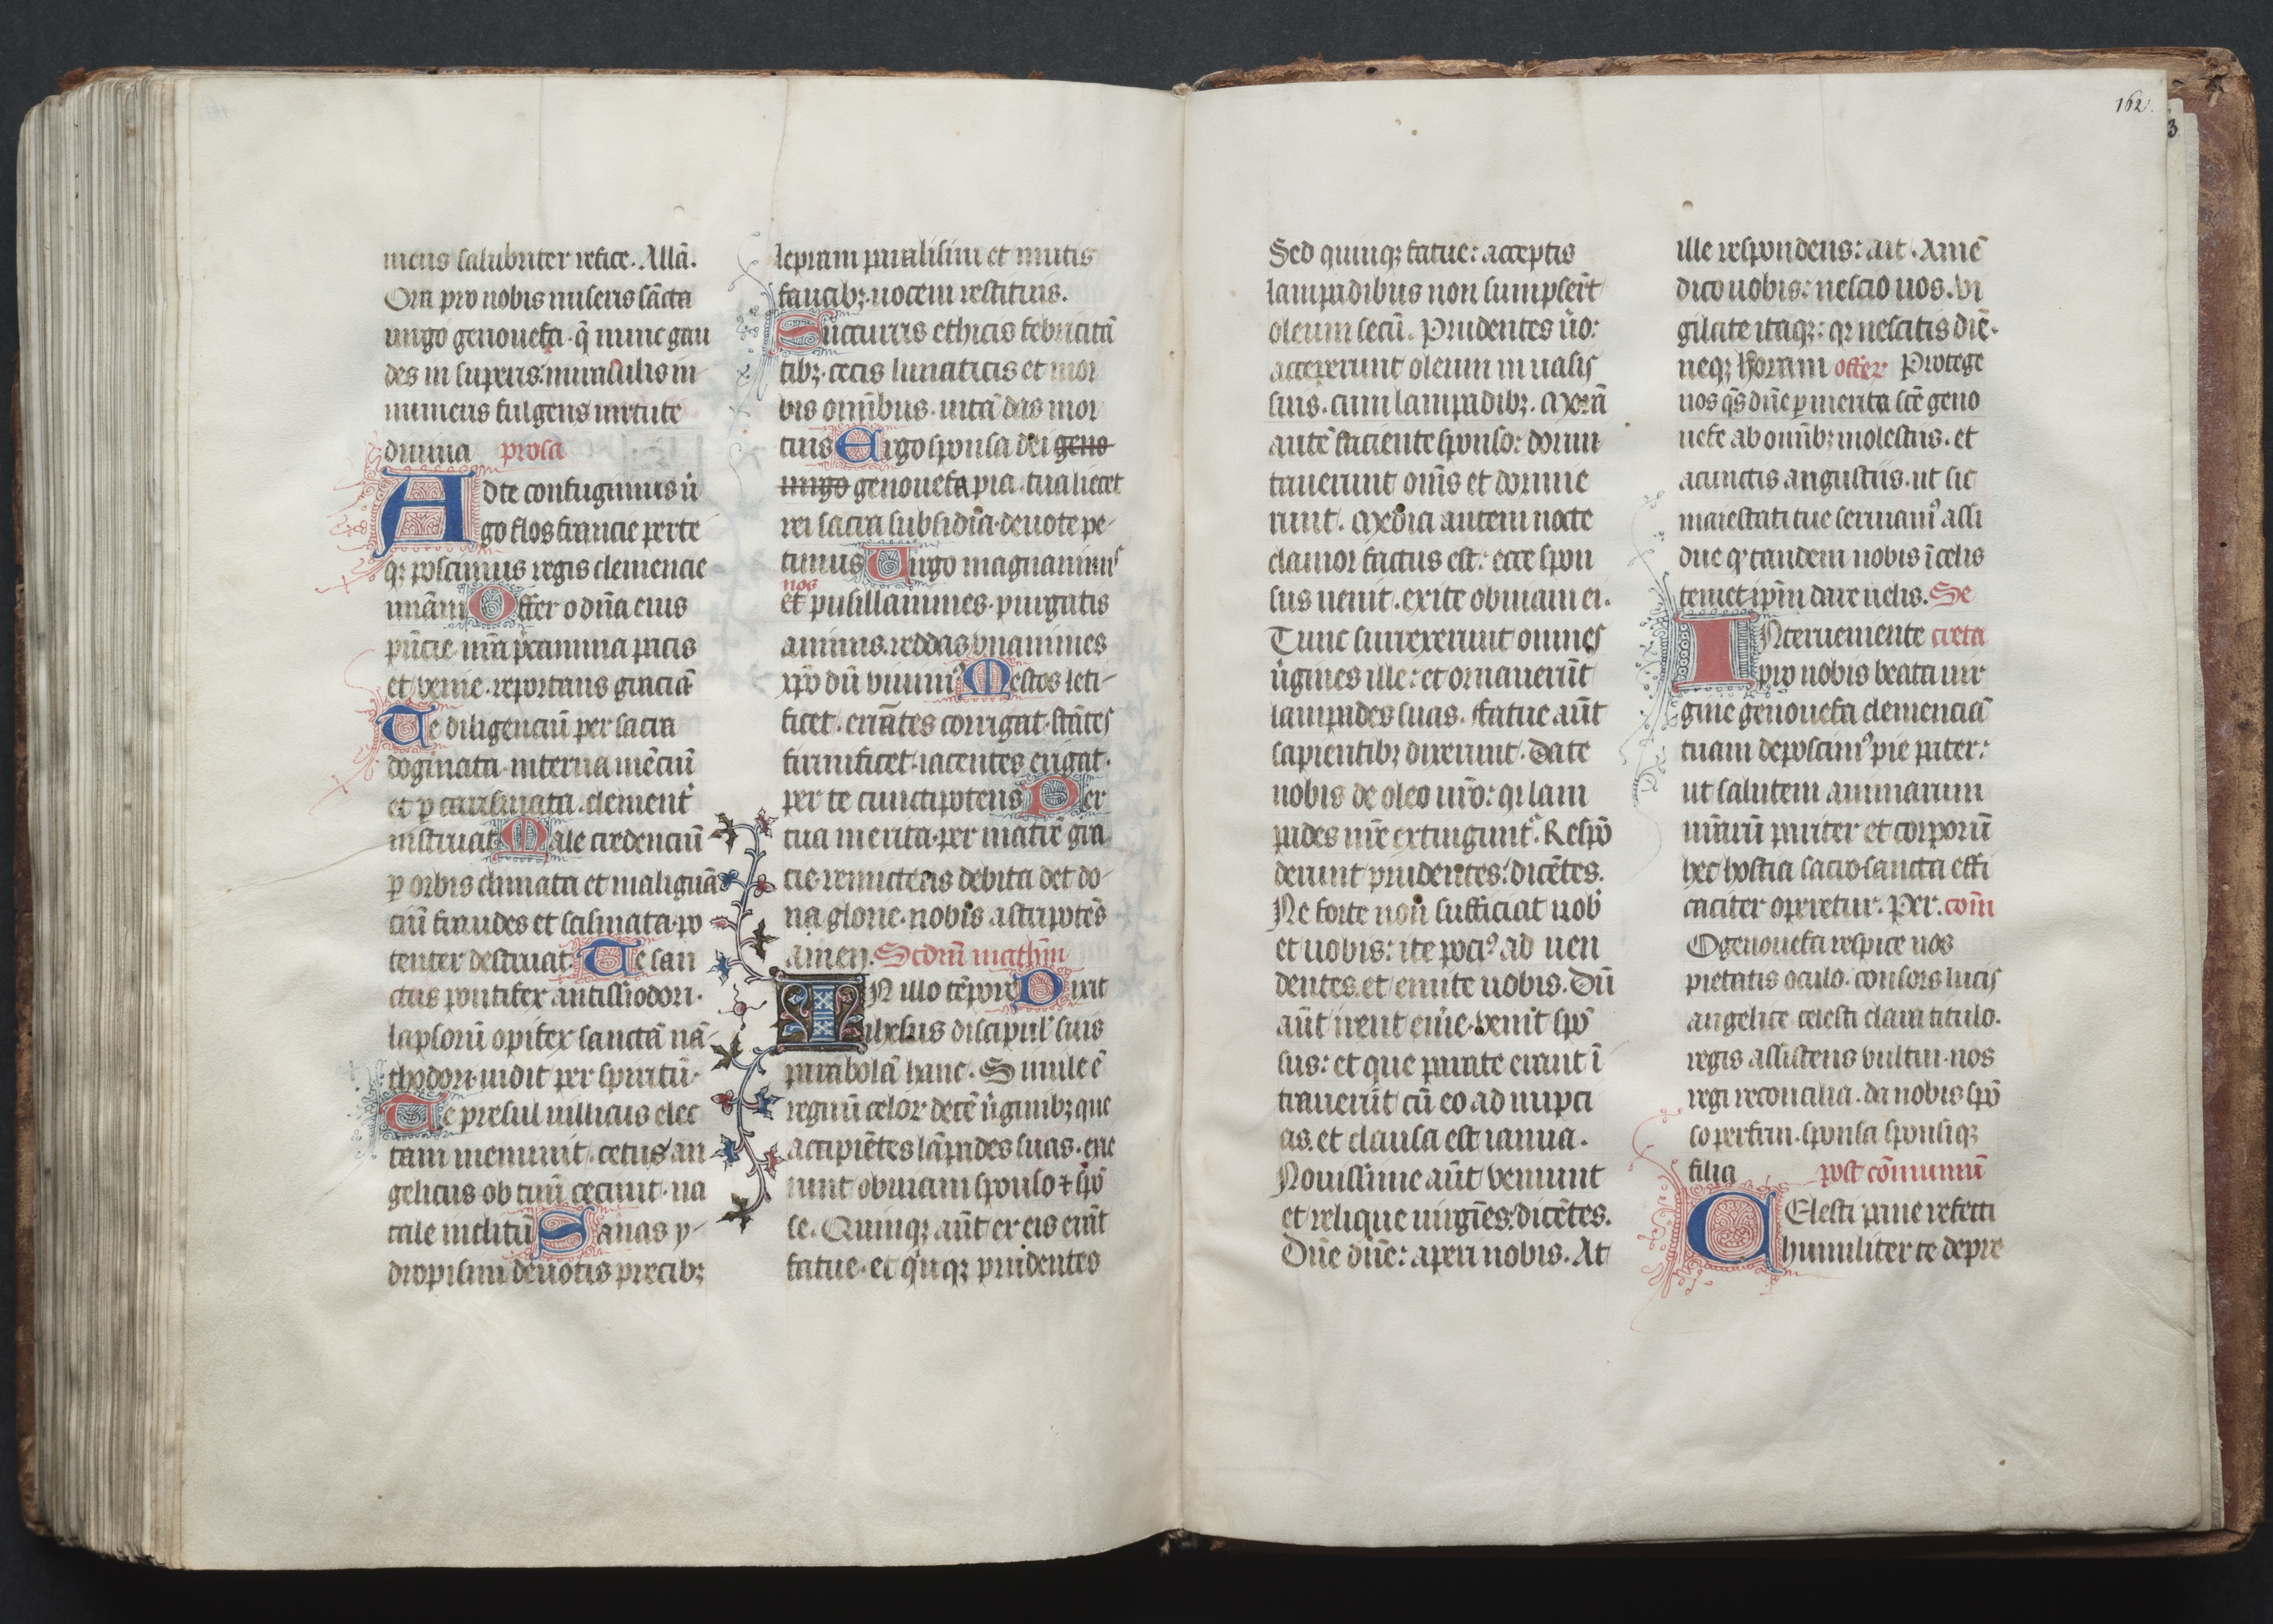 mens salubriter refice. Allā.
Ora pro nobis miseris sācta
uirgo genouefa. q̄ nunc gau
des in superis. miraculis in
numeris fulgens uirtute
diuina prosa
Ad te confugimus ūi
go flos francie per te
qȝ poscimus regis clemencie
uniām Offer o dn̄a eius
pn̄cie nr̄a pcamina pacis
et venie. reportans graciā
Te diligenciū per sacra
dogmata. interna mēciū
et p carismata. clement̄
instruat. Male credenciū
p orbis climata et malignā
ciū fraudes et scismata. po
tenter destruat. Te san
ctus pontifex antissiodori.
lapsorū opifex sanctā nā
thodori. uidit per spiritū.
Te presul uillicus elec
tam inuenit. cetus an
gelicus ob tuū cecinit. na
tale inclitū Sanas y
dropisim deuotis precibȝ
lepram paralisim et mutis
faucibȝ. uocem restituis.
Succurris ethicis febricitā
tibȝ. cecis lunaticis et mor
bis om̄ibus. uitā das mor
tuis Ergo sponsa dei geno
uirgo genouefa pia. tua liecet
rei sacra subsidia. deuote pe
timus Uirgo magnanimꝰ
nos
et pusillanimes. purgatis
animis. reddas vnanimes
xpō dū viuimꝰ Mestos leti
ficet. errātes corrigat. stātes
firmificet. iacentes erigat.
per te cunctipotens Per
tua merita. per matrē gra
cie. remictens debita det do
na glorie. nobis astripotēs
amen. Scdm̄ mathm̄
IN illo tēpore Dixit
ihesus discipul' suis
parabolā hanc. Simile ē
regnū celor decē ūginibȝ que
accipiētes lāpades suas. exie
runt obuiam sponso ⁊ spō
se. Quinqȝ aūt ex eis erāt
fatue. et quīqȝ prudentes
162.
3
Sed quinqȝ fatue: acceptis
lampadibus non sumpserūt
oleum secū. Prudentes ūo:
acceperunt oleum in uasis
suis. cum lampadibȝ. Morā
autē faciente sponso: dormi
tauerunt om̄s et dormie
runt. Media autem nocte
clamor factus est: ecce spon
sus uenit. exite obuiam ei.
Tunc surrexerunt omnes
ūgines ille: et ornauerūt
lampades suas. ffatue aūt
sapientibȝ dixerunt. Date
nobis de oleo uro: qr lam
pades nr̄e extingunt'. Respō
derunt prudentes: dicētes.
Ne forte non sufficiat nob'
et uobis: ite pociꝰ ad uen
dentes. et emite uobis. Dū
aūt irent em̄e. venit spō
sus: et que parate erant ī
trauerūt cū eo ad nupci
as. et clausa est ianua.
Nouissime aūt veniunt
et relique uirgīes: dicētes.
Dn̄e dn̄e: aperi nobis. At
ille respondens: ait. Amē
dico uobis: nescio uos. Vi
gilate itaqȝ: qr nescitis diē.
neqȝ horam offer Protege
nos qs dn̄e p merita scē geno
uefe ab om̄ibȝ molestiis. et
a cunctis angustiis. ut sic
maiestati tue seruiamꝰ assi
due qr tandem nobis ī celis
temet ip̄m dare uelis. Se
INterueniente creta
pro nobis beata uir
gine genouefa clemenciā
tuam deposcimꝰ pie pater:
ut salutem animarum
nr̄arū pariter et corporū
hec hostia sacrosancta effi
caciter operetur. Per. com̄
O genouefa respice nos
pietatis oculo. consors lucis
angelice celesti clara titulo.
regis assistens vultui. nos
regi reconcilia. da nobis spō
so perfrui. sponsa sponsiqȝ
filia post cōmuniū
CElesti pane refecti
humiliter te depre